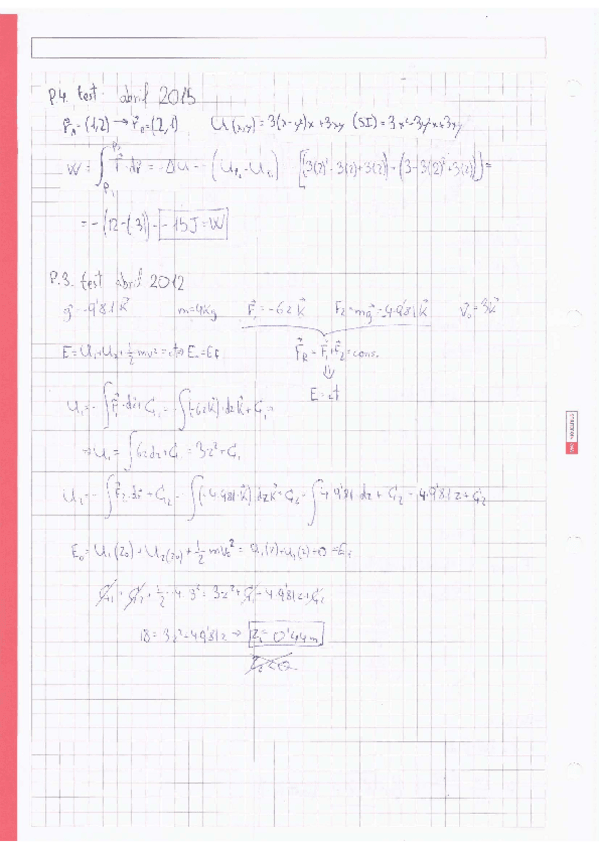 P.4. test abril 2015
P_A = (1,2) → P_B = (2,1) U(x,y) = 3(x-y²)x + 3xy (SI) = 3x²-3y²x+3xy
W = ∫ F·dr = -ΔU = -(U_P2 - U_P1) [(3(2)²-3(2)+3(2)) - (3-3(2)²+3(2))] =
= -(12-(-3)) = -15J = W
P.3. test abril 2012
g = -9'81k m=4kg F₁ = -6zk F₂ = mg = -4·9'81k v₀ = 3k
E = U₁+U₂+½mv² = ct ⇒ E₀=E_f F_R = F₁+F₂ = cons.
⇓
E = ct
U₁ = -∫F₁·dr + C₁ = -∫(-6zk)·dzk + C₁ =
⇒ U₁ = ∫6zdz + C₁ = 3z² + C₁
U₂ = -∫F₂·dr + C₂ = -∫(-4·9'81·k)dzk + C₂ = ∫4·9'81·dz + C₂ = 4·9'81z + C₂
E₀ = U₁(z₀) + U₂(z₀) + ½mv₀² = U₁(z) + U₂(z) + 0 = E_f
C₁ + C₂ + ½·4·3² = 3z² + C₁ + 4·9'81z + C₂
18 = 3z² + 4·9'81z ⇒ z₁ = 0'44m
z₂<0